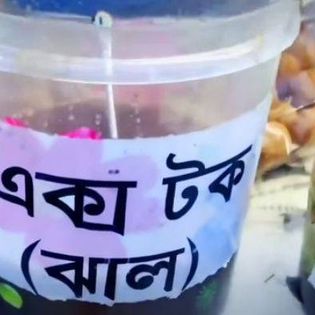 এক্স টক
(ঝাল)